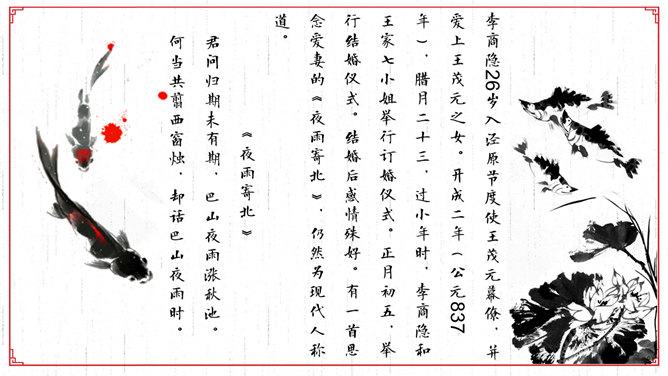 李商隐26岁入泾原节度使王茂元幕僚，并
爱上王茂元之女。开成二年（公元837
年），腊月二十三，过小年时，李商隐和
王家七小姐举行订婚仪式。正月初五，举
行结婚仪式。结婚后感情殊好。有一首思
念爱妻的《夜雨寄北》，仍然为现代人称
道。
《夜雨寄北》
君问归期未有期，巴山夜雨涨秋池。
何当共剪西窗烛，却话巴山夜雨时。